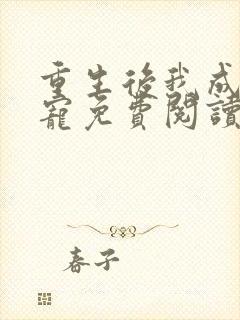 重生後我成
寵免費閱讀
春子